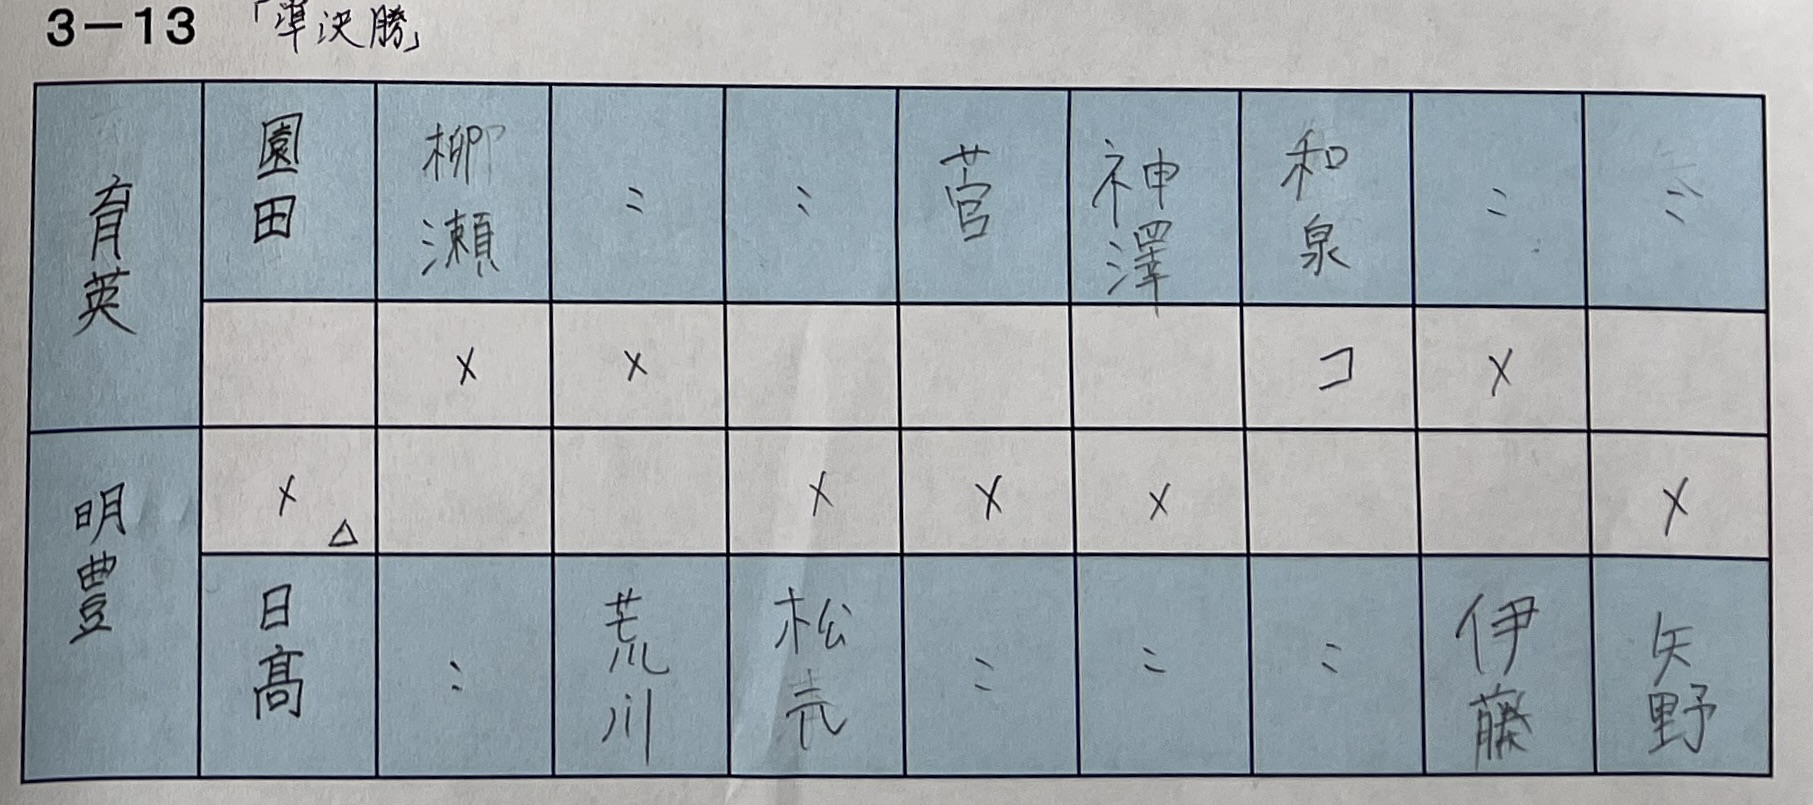 3－13 「準決勝」
育英 園田 柳瀬 〃 〃 菅 神澤 和泉 〃 〃
× × コ ×
明豊 × △ × × × ×
日髙 〃 荒川 松売 〃 〃 〃 伊藤 矢野